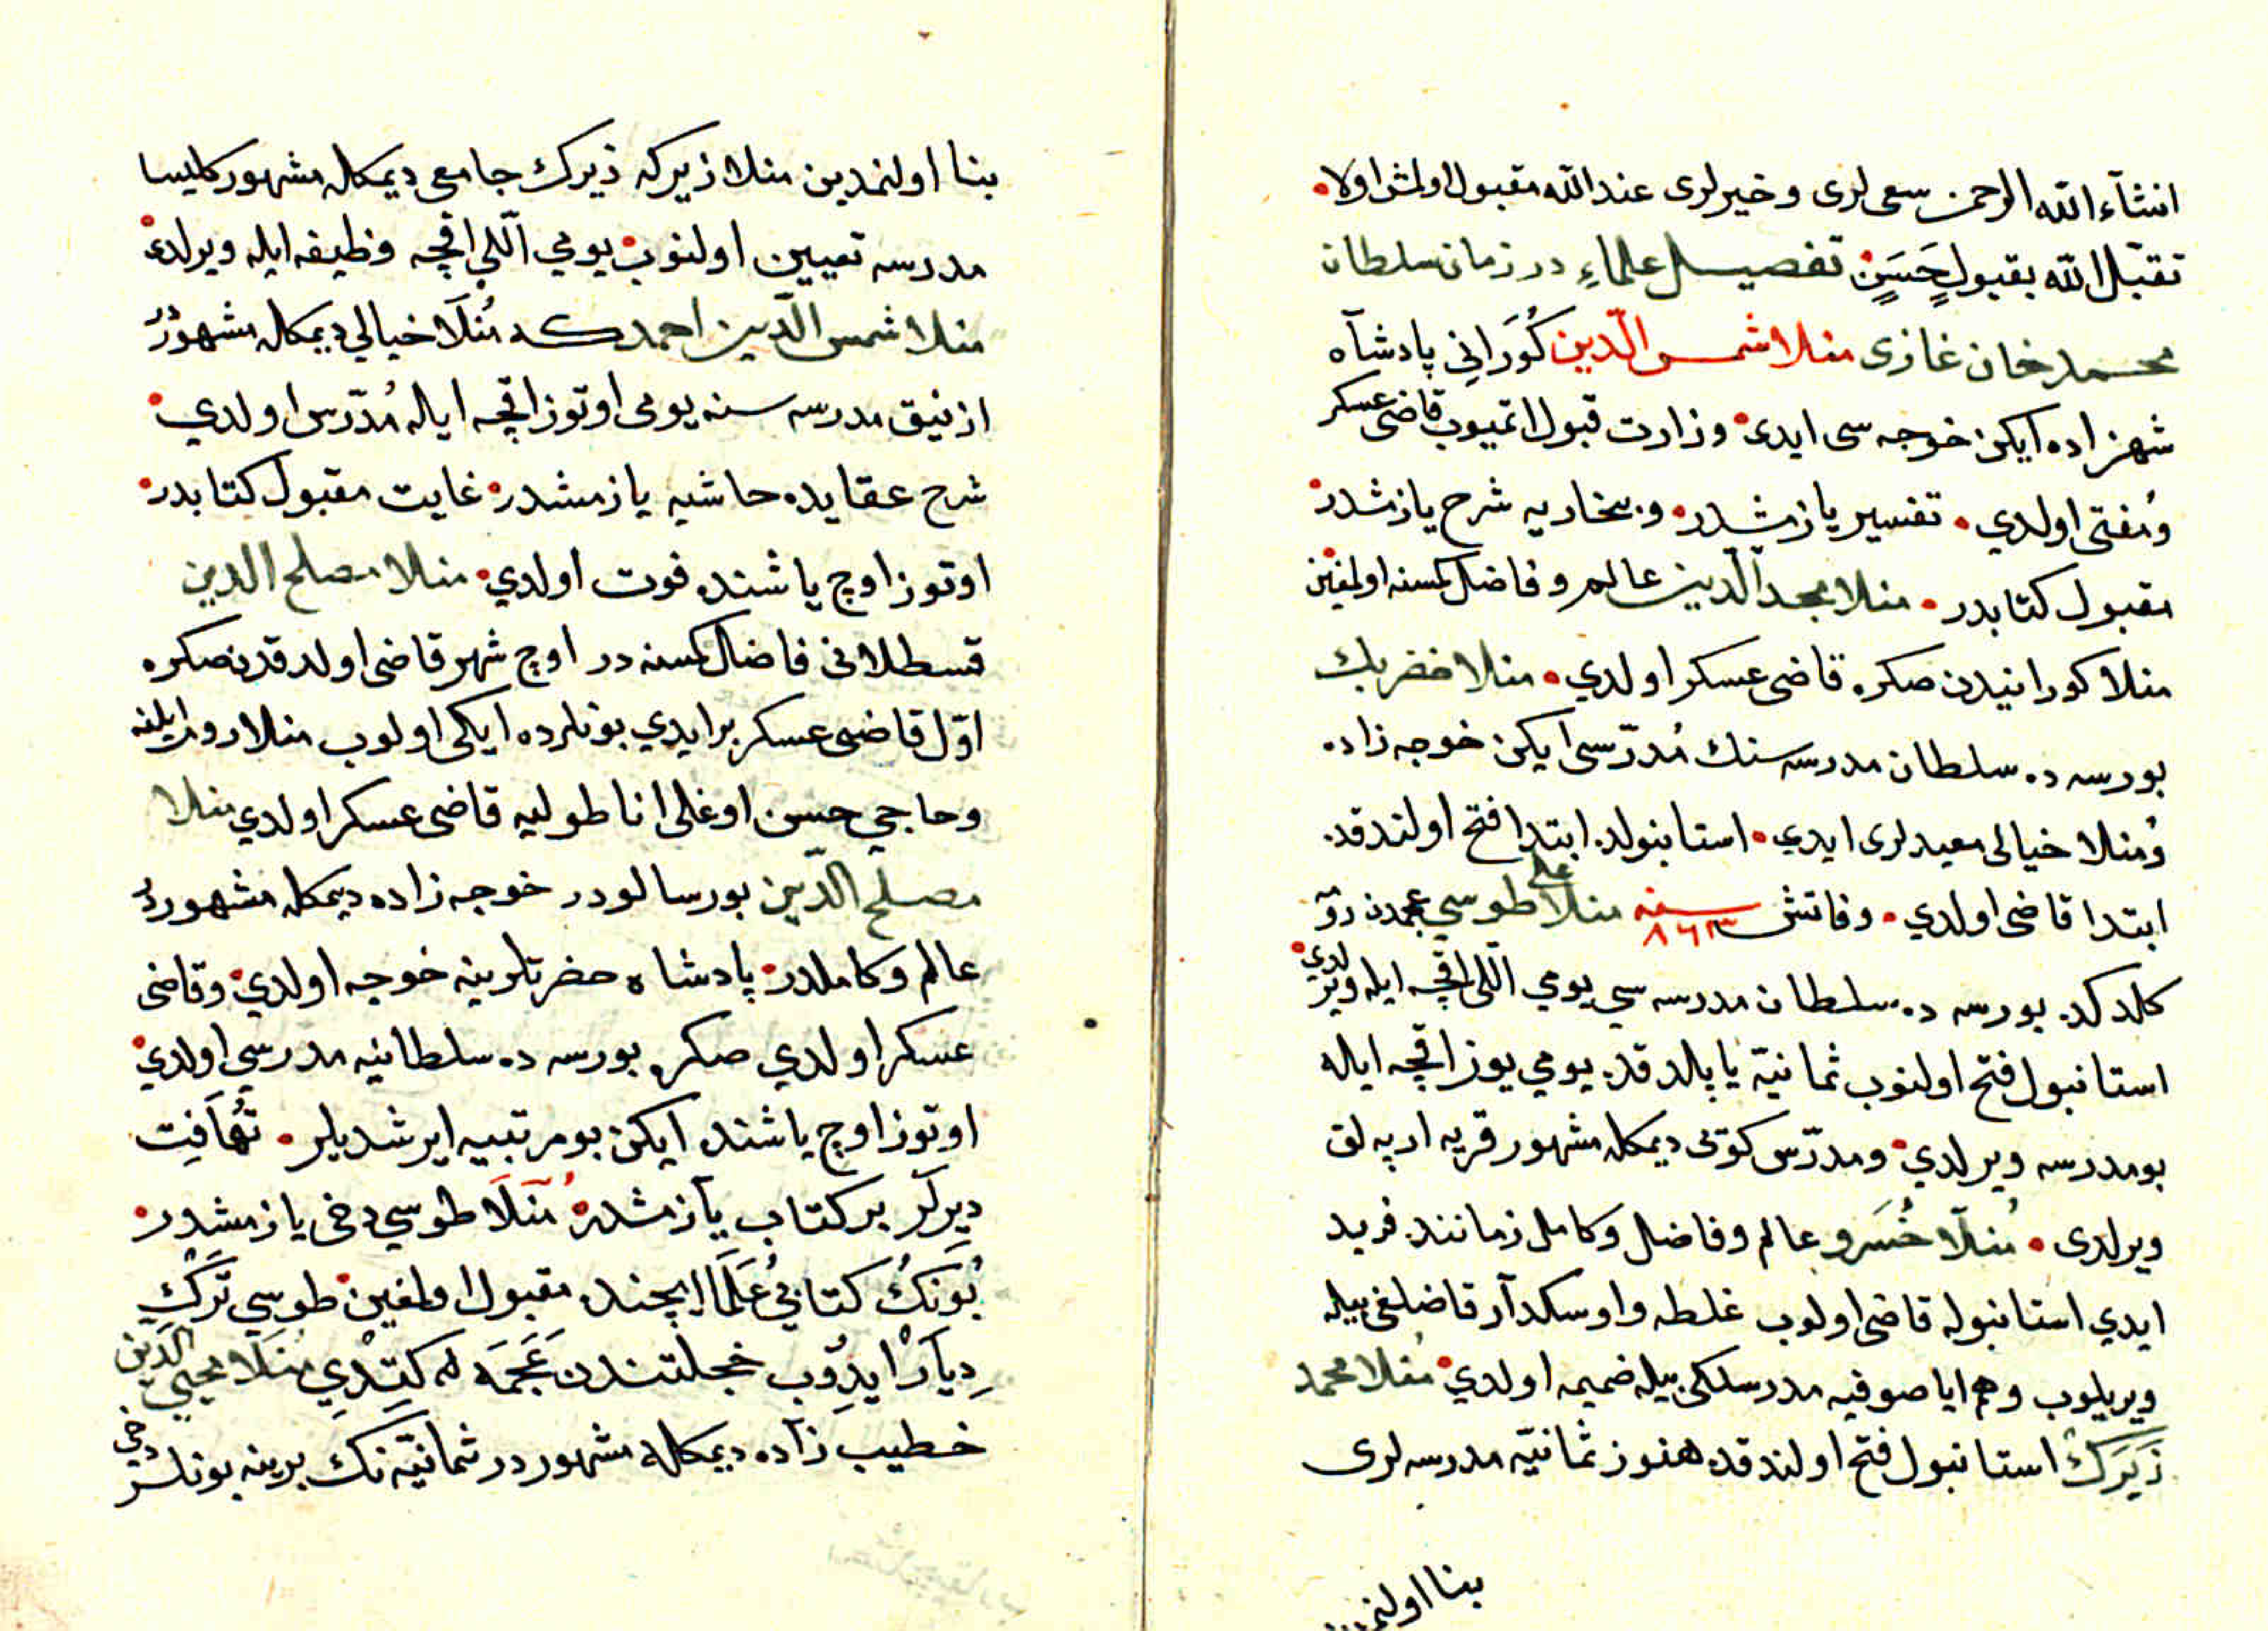 انشآء الله الرحمن سعی لری و خیرلری عند الله مقبول اولمش اولا
تقبّل الله بقبولٍ حَسَنٍ تفصیل علماءِ در زمان سلطان
محمد خان غازی منلا شمس الدّین کُورَانِي پادشآه
شهزاده ایکن خوجه سی ایدی وزارت قبول اتمیوب قاضی عسکر
وُمفتی اولدي تفسیر یازمشدر و بخاریه شرح یازمشدر
مقبول کتابدر منلا مجد الدّین عالم و فاضل کمسنه اولمغین
منلا کورانیدن صکره قاضی عسکر اولدي منلا خضر بك
بورسه ده سلطان مدرسه سنك مُدرّسی ایکن خوجه زاده
وُمنلا خیالی معیدلری ایدي استانبولده ابتدا فتح اولندقده
ابتدا قاضی اولدي وفاتش سنه ٨٦٣ منلا علی طوسي عجمدن رومه
کلدکده بورسه ده سلطان مدرسه سي یومي اللّی اقچه ایله ویرلدي
استانبول فتح اولنوب ثمانیّه یاپلدقده یومي یوز اقچه ایله
بو مدرسه ویرلدي و مدرّس کوتی دیمکله مشهور قریه ارپه لق
ویرلدی مُنلّا خُسَرو عالم و فاضل و کامل زمانند فرید
ایدي استانبوله قاضی اولوب غلطه و اوسکدآر قاضلغی بیله
ویریلوب و هم ایا صوفیه مدرسلکی بیله ضمیمه اولدي مُنلا محمد
زَیَرَكْ استانبول فتح اولندقده هنوز ثمانیّه مدرسه لری
بنا اولنمدین
بنا اولنمدین منلا زیرکه زیرك جامعی دیمکله مشهور کلیسا
مدرسه تعیین اولنوب یومي اللّي اقچه وظیفه ایله ویرلدی
منلا شمس الدّین احمد که مُنلَا خیالي دیمکله مشهوْرُ
ازنیق مدرسه سنه یومی اوتوز اقچه ایله مُدرّس اولدي
شرح عقایده حاشیه یازمشدر غایت مقبول کتابدر
اوتوز اوچ یاشنده فوت اولدي منلا مصلح الدین
قسطلانی فاضل کمسنه در اوچ شهر قاضی اولدقدن صکره
اوّل قاضی عسکر بر ایدي بونلرده ایکی اولوب منلا روم ایلنه
و حاجي حسن اوغلی اناطولیه قاضی عسکر اولدي منلا
مصلح الدّین بورسالودر خوجه زاده دیمکله مشهوردُ
عالم و کاملدر پادشاه حضرتلرینه خوجه اولدي و قاضی
عسکر اولدي صکره بورسه ده سلطانیه مدرسي اولدي
اوتوز اوچ یاشنده ایکن بو مرتبیه ایرشدیلر تُهَافِت
دیِرلَر بر کتاب یآزمشدر مُنلَا طوسي دخی یازمشدر
بُونَكُ کتابيُ عُلَمَا ایچنده مقبول اولمغین طوسِي تَرْكِ
دِیآرْ ایدِوُب خجلتندن عَجَمَه له کِتِدْيِ مُنلَا محیي الدّین
خطیب زآده دیمکله مشهوردر ثمانیّه نك برینه بونلر دخی